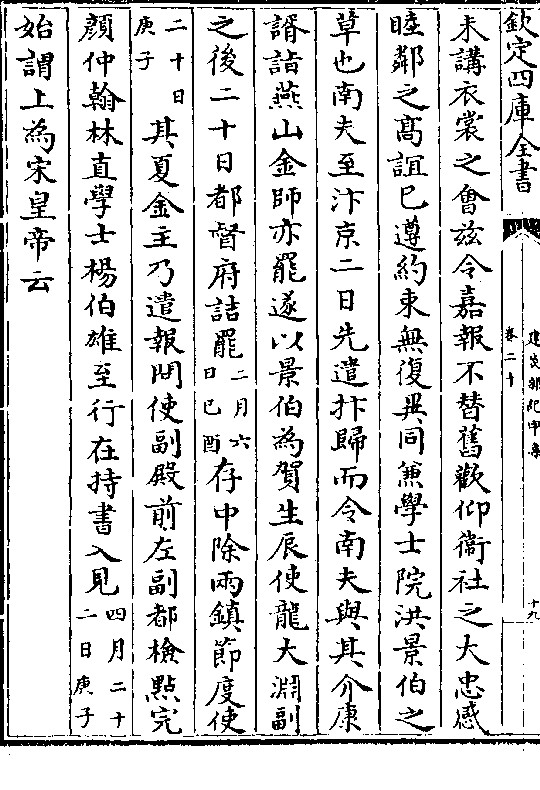 欽定四庫全書
建炎雜記甲集
卷二十
十九
未講衣裳之會兹令嘉報不替舊歡仰衞社之大忠感
睦鄰之髙誼已遵約束無復異同兼學士院洪景伯之
草也南夫至汴京二日先遣抃歸而令南夫與其介康
諝詣燕山金師亦罷遂以景伯為賀生辰使龍大淵副
之後二十日都督府詰罷二月六日己酉存中除兩鎮節度使
二十日庚子其夏金主乃遣報問使副殿前左副都檢點完
顔仲翰林直學士楊伯雄至行在持書入見四月二十二日庚子
始謂上為宋皇帝云